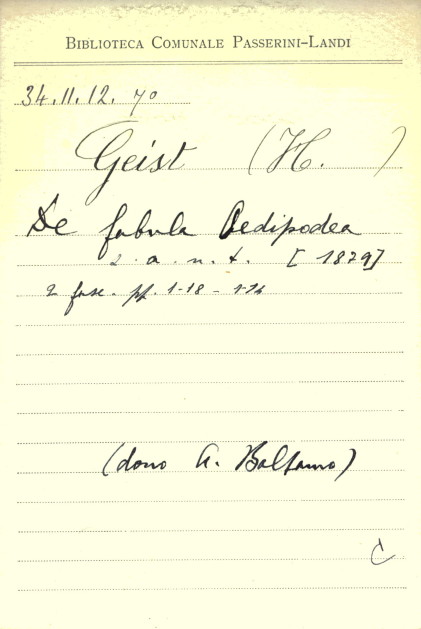 BIBLIOTECA COMUNALE PASSERINI-LANDI
34.II.12. 70
Geist (H. )
De fabula Oedipodea
s. a. n. t. [1879]
2 fasc. pp. 1-18 - 1-26
(dono A. Balsamo)
C